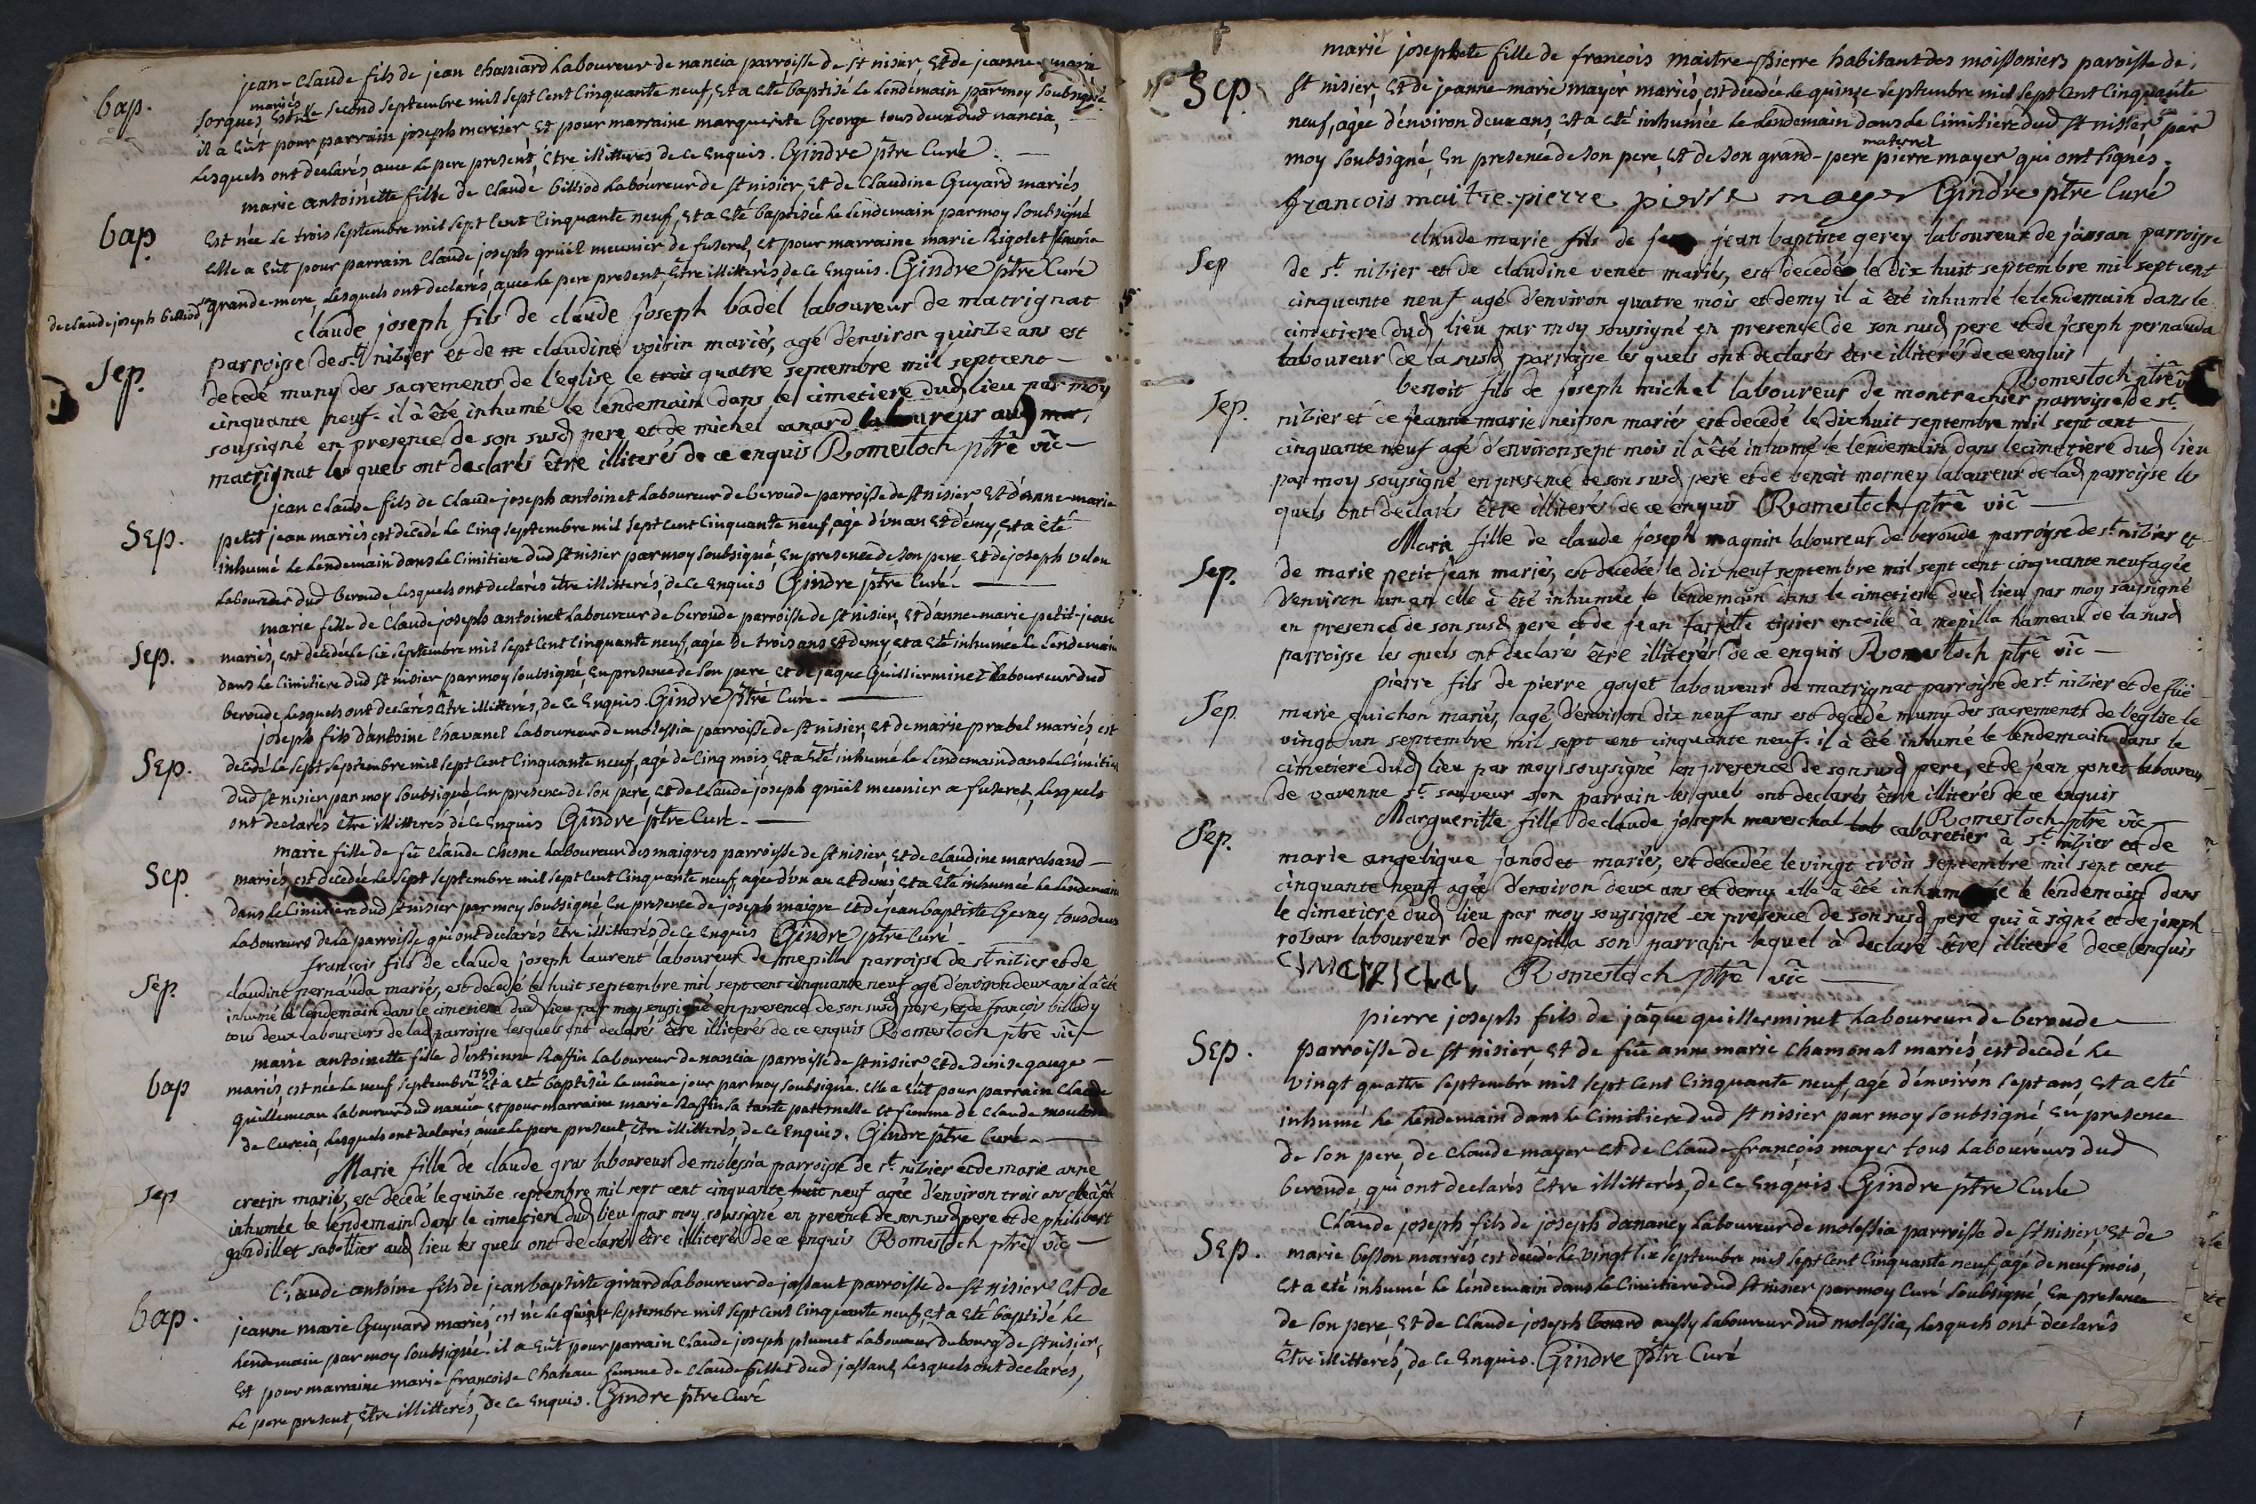 jean-claude fils de jean Chassard Laboureur de nancia parroisse de st nisier, Et de jeanne-marie
bap.
mariés
Est né Le second septembre mil sept Cent Cinquante neuf, Et a eté baptisé Le Lendemain par moy soubsigné
il a Eût pour parrain joseph mercier Et pour marraine marguerite George tous deux dud nancia,
Lesquels ont declarés, avec Le pere present, Être illitterés de Ce Enquis. Gindre ptre Curé.
marie antoinette fille de Claude billiod Laboureur de st nisier, Et de Claudine Guyard mariés
bap.
Est née Le trois septembre mil sept Cent Cinquante neuf, Et a eté baptisée Le Lendemain par moy soubsigné
Elle a Eût pour parrain Claude joseph gruët meunier de fuseret, Et pour marraine marie Rigolet femme
de claude joseph billiod, grande-mere, Lesquels ont declarés, avec le pere present, Être illitterés, de Ce Enquis. Gindre ptre Curé
claude joseph fils de claude joseph badel laboureur de matrignat
Sep.
parroisse de st nizier et de claudine voisin mariés, agé d'environ quinze ans est
decedé muny des sacrements de l'eglise le trois quatre septembre mil sept cent
cinquante neuf il à êté inhumé le lendemain dans le cimetiere dud lieu par moy
soussigné en presence de son susd pere et de michel canard laboureur aud
matrignat les quels ont declarés être illiterés de ce enquis Romestoch ptre vic
jean claude fils de Claude joseph antoinet Laboureur de beroude parroisse de st nisier Et d'anne-marie
Sep.
petit jean mariés, est decedé le Cinq septembre mil sept Cent Cinquante neuf, agé d'un an Et demy, Et a eté
inhumé Le Lendemain dans Le Cimitiere dud st nisier par moy soubsigné, En presence de son pere Et de joseph velon
Laboureur dud beroude Lesquels ont declarés Être illitterés, de Ce Enquis Gindre ptre Curé.
marie fille de Claude joseph antoinet Laboureur de beroude parroisse de st nisier, Et d'anne-marie petit-jean
Sep.
mariés, est decedée Le six septembre mil sept Cent Cinquante neuf, agée de trois ans Et demy Et a eté inhumée Le Lendemain
dans Le Cimitiere dud st nisier par moy soubsigné, En presence de son pere Et de jaque Guillierminet Laboureur dud
beroude Lesquels ont declarés Être illitterés, de Ce Enquis. Gindre ptre Curé.
joseph fils d'antoine Chavanel Laboureur de molessia parroisse de st nisier, Et de marie prabel mariés est
Sep.
decedé Le sept septembre mil sept Cent Cinquante neuf, agé de Cinq mois, Et a eté inhumé Le Lendemain dans Le Cimitiere
dud st nisier par moy soubsigné, En presence de son pere, Et de Claude joseph gruët meunier a fuseret, Lesquels
ont declarés Être illitterés de Ce Enquis Gindre ptre Curé.
marie fille de fû Claude Chesne Laboureur des maigres parroisse de st nisier, Et de Claudine marchand
Sep.
mariés, est decedée Le sept septembre mil sept Cent Cinquante neuf, agée d'un an Et demi, Et a eté inhumée Le Lendemain
dans Le Cimitiere dud st nisier par moy soubsigné En presence de joseph maigre Et de jean baptiste Gerey tous deux
Laboureurs de La parroisse qui ont declarés Être illitterés, de Ce Enquis Gindre ptre Curé
françois fils de claude joseph laurent laboureur de mepilla parroisse de st nizier et de
Sep.
claudine pernauda mariés, est decedé le huit septembre mil sept cent cinquante neuf agé d'environ deux ans il à êté
inhumé le lendemain dans le cimetiere dud lieu par moy soussigné en presence de son susd pere, et de françois billady
tous deux laboureurs de lad parroisse lesquels ont declarés être illiterés de ce enquis Romestoch ptre vic
marie antoinette fille d'estienne Raffin Laboureur de nancia parroisse de st nisier, Et de denise gauge
bap
mariés, est née Le neuf septembre 1759 Et a eté baptisée Le même jour par moy soubsigné. Elle a Eût pour parrain Claude
guillemeau Laboureur dud nancia Et pour marraine marie Raffin sa tante paternelle Et femme de Claude
de Curcia, Lesquels ont declarés, avec Le pere present, Être illitterés, de Ce Enquis. Gindre ptre Curé.
Marie fille de claude gras laboureur de molessia parroisse de st nizier et de marie anne
Sep
cretin mariés, est decedé le quinze septembre mil sept cent cinquante huit neuf agée d'environ trois ans elle à êté
inhumée le lendemain dans le cimetiere dud lieu par moy soussigné en presence de son susd pere et de philibert
gandillet sabottier aud lieu les quels ont declarés être illiterés de ce enquis Romestoch ptre vic
Claude antoine fils de jean baptiste girard Laboureur de jassant parroisse de st nisier Et de
bap.
jeanne marie Guyard mariés est né Le quinze septembre mil sept Cent Cinquante neuf, Et a eté baptisé Le
Lendemain par moy soubsigné. il a Eût pour parrain Claude joseph plumet Laboureur du bourg de st nisier,
Et pour marraine marie françoise Chateau femme de Claude fillet dud jassant, Lesquels ont declarés,
Le pere present, Être illitterés, de Ce Enquis. Gindre ptre Curé
marie josephete fille de françois maitre-pierre habitant des moissoniers paroisse de
Sep.
st nisier, Et de jeanne-marie mayer mariés, est decedée Le quinze septembre mil sept Cent Cinquante
neuf, agée d'environ deux ans, Et a eté inhumée Le Lendemain dans Le Cimitiere dud st nisier par
moy soubsigné, En presence de son pere, Et de son grand-pere maternel pierre mayer qui ont signés.
francois maitre-pierre pierre mayer Gindre ptre Curé
claude marie fils de jean baptiste gerey laboureur de jassan parroisse
Sep
de st nizier et de claudine venet mariés, est decedé le dix huit septembre mil sept cent
cinquante neuf agé d'environ quatre mois et demy il à êté inhumé le lendemain dans le
cimetiere dud lieu par moy soussigné en presence de son susd pere et de joseph pernauda
laboureur de la susd parroisse les quels ont declarés être illiterés de ce enquis
Romestoch ptre vic
benoit fils de joseph michel laboureur de montrachier parroisse de st
Sep.
nizier et de jeanne marie neisson mariés est decedé le dix huit septembre mil sept cent
cinquante neuf agé d'environ sept mois il à êté inhumé le lendemain dans le cimetiere dud lieu
par moy soussigné en presence de son susd pere et de benoit morney laboureur de lad parroisse les
quels ont declarés être illiterés de ce enquis Romestoch ptre vic
Marie fille de claude joseph magnin laboureur de beroude parroisse de st nizier et
Sep.
de marie petit jean mariés, est decedée le dix neuf septembre mil sept cent cinquante neuf agée
d'environ un an elle à êté inhumée le lendemain dans le cimetiere dud lieu par moy soussigné
en presence de son susd pere et de jean tissier en toile à mepilla hameau de la susd
parroisse les quels ont declarés être illiterés de ce enquis Romestoch ptre vic
pierre fils de pierre goyet laboureur de matrignat parroisse de st nizier et de fûe
Sep
marie guichon mariés, agé d'environ dix neuf ans est decedé muny des sacrements de l'eglise le
vingt un septembre mil sept cent cinquante neuf. il à êté inhumé le lendemain dans le
cimetiere dud lieu par moy soussigné en presence de son susd pere, et de jean gonet laboureur
de varenne st sauveur son parrain les quels ont declarés être illiterés de ce enquis
Romestoch ptre vic
Margueritte fille de claude joseph mareschal cabaretier à st nizier et de
Sep.
marie angelique janodet mariés, est decedée le vingt trois septembre mil sept cent
cinquante neuf agée d'environ deux ans et demy elle à êté inhumée le lendemain dans
le cimetiere dud lieu par moy soussigné en presence de son susd pere qui à signé et de joseph
roban laboureur de mepilla son parrain lequel à declaré être illiteré de ce enquis
Romestoch ptre vic
pierre joseph fils de jâque guillerminet Laboureur de beroude
Sep.
parroisse de st nisier, Et de fûe anne marie Chamonal mariés, est decedé Le
vingt quatre septembre mil sept Cent Cinquante neuf, agé d'environ sept ans, Et a eté
inhumé Le Lendemain dans Le Cimitiere dud st nisier par moy soubsigné, En presence
de son pere, de Claude mayer Et de Claude-françois mayer tous Laboureurs dud
beroude, qui ont declarés Être illitterés, de Ce Enquis. Gindre ptre Curé
Claude joseph fils de joseph dananey Laboureur de molessia parroisse de st nisier, Et de
Sep.
marie besson mariés est decedé Le vingt six septembre mil sept Cent Cinquante neuf, agé de neuf mois,
Et a eté inhumé Le Lendemain dans Le Cimitiere dud st nisier par moy Curé soubsigné, En presence
de son pere, Et de Claude joseph aussy Laboureur dud molessia, Lesquels ont declarés
Être illitterés, de Ce Enquis. Gindre ptre Curé